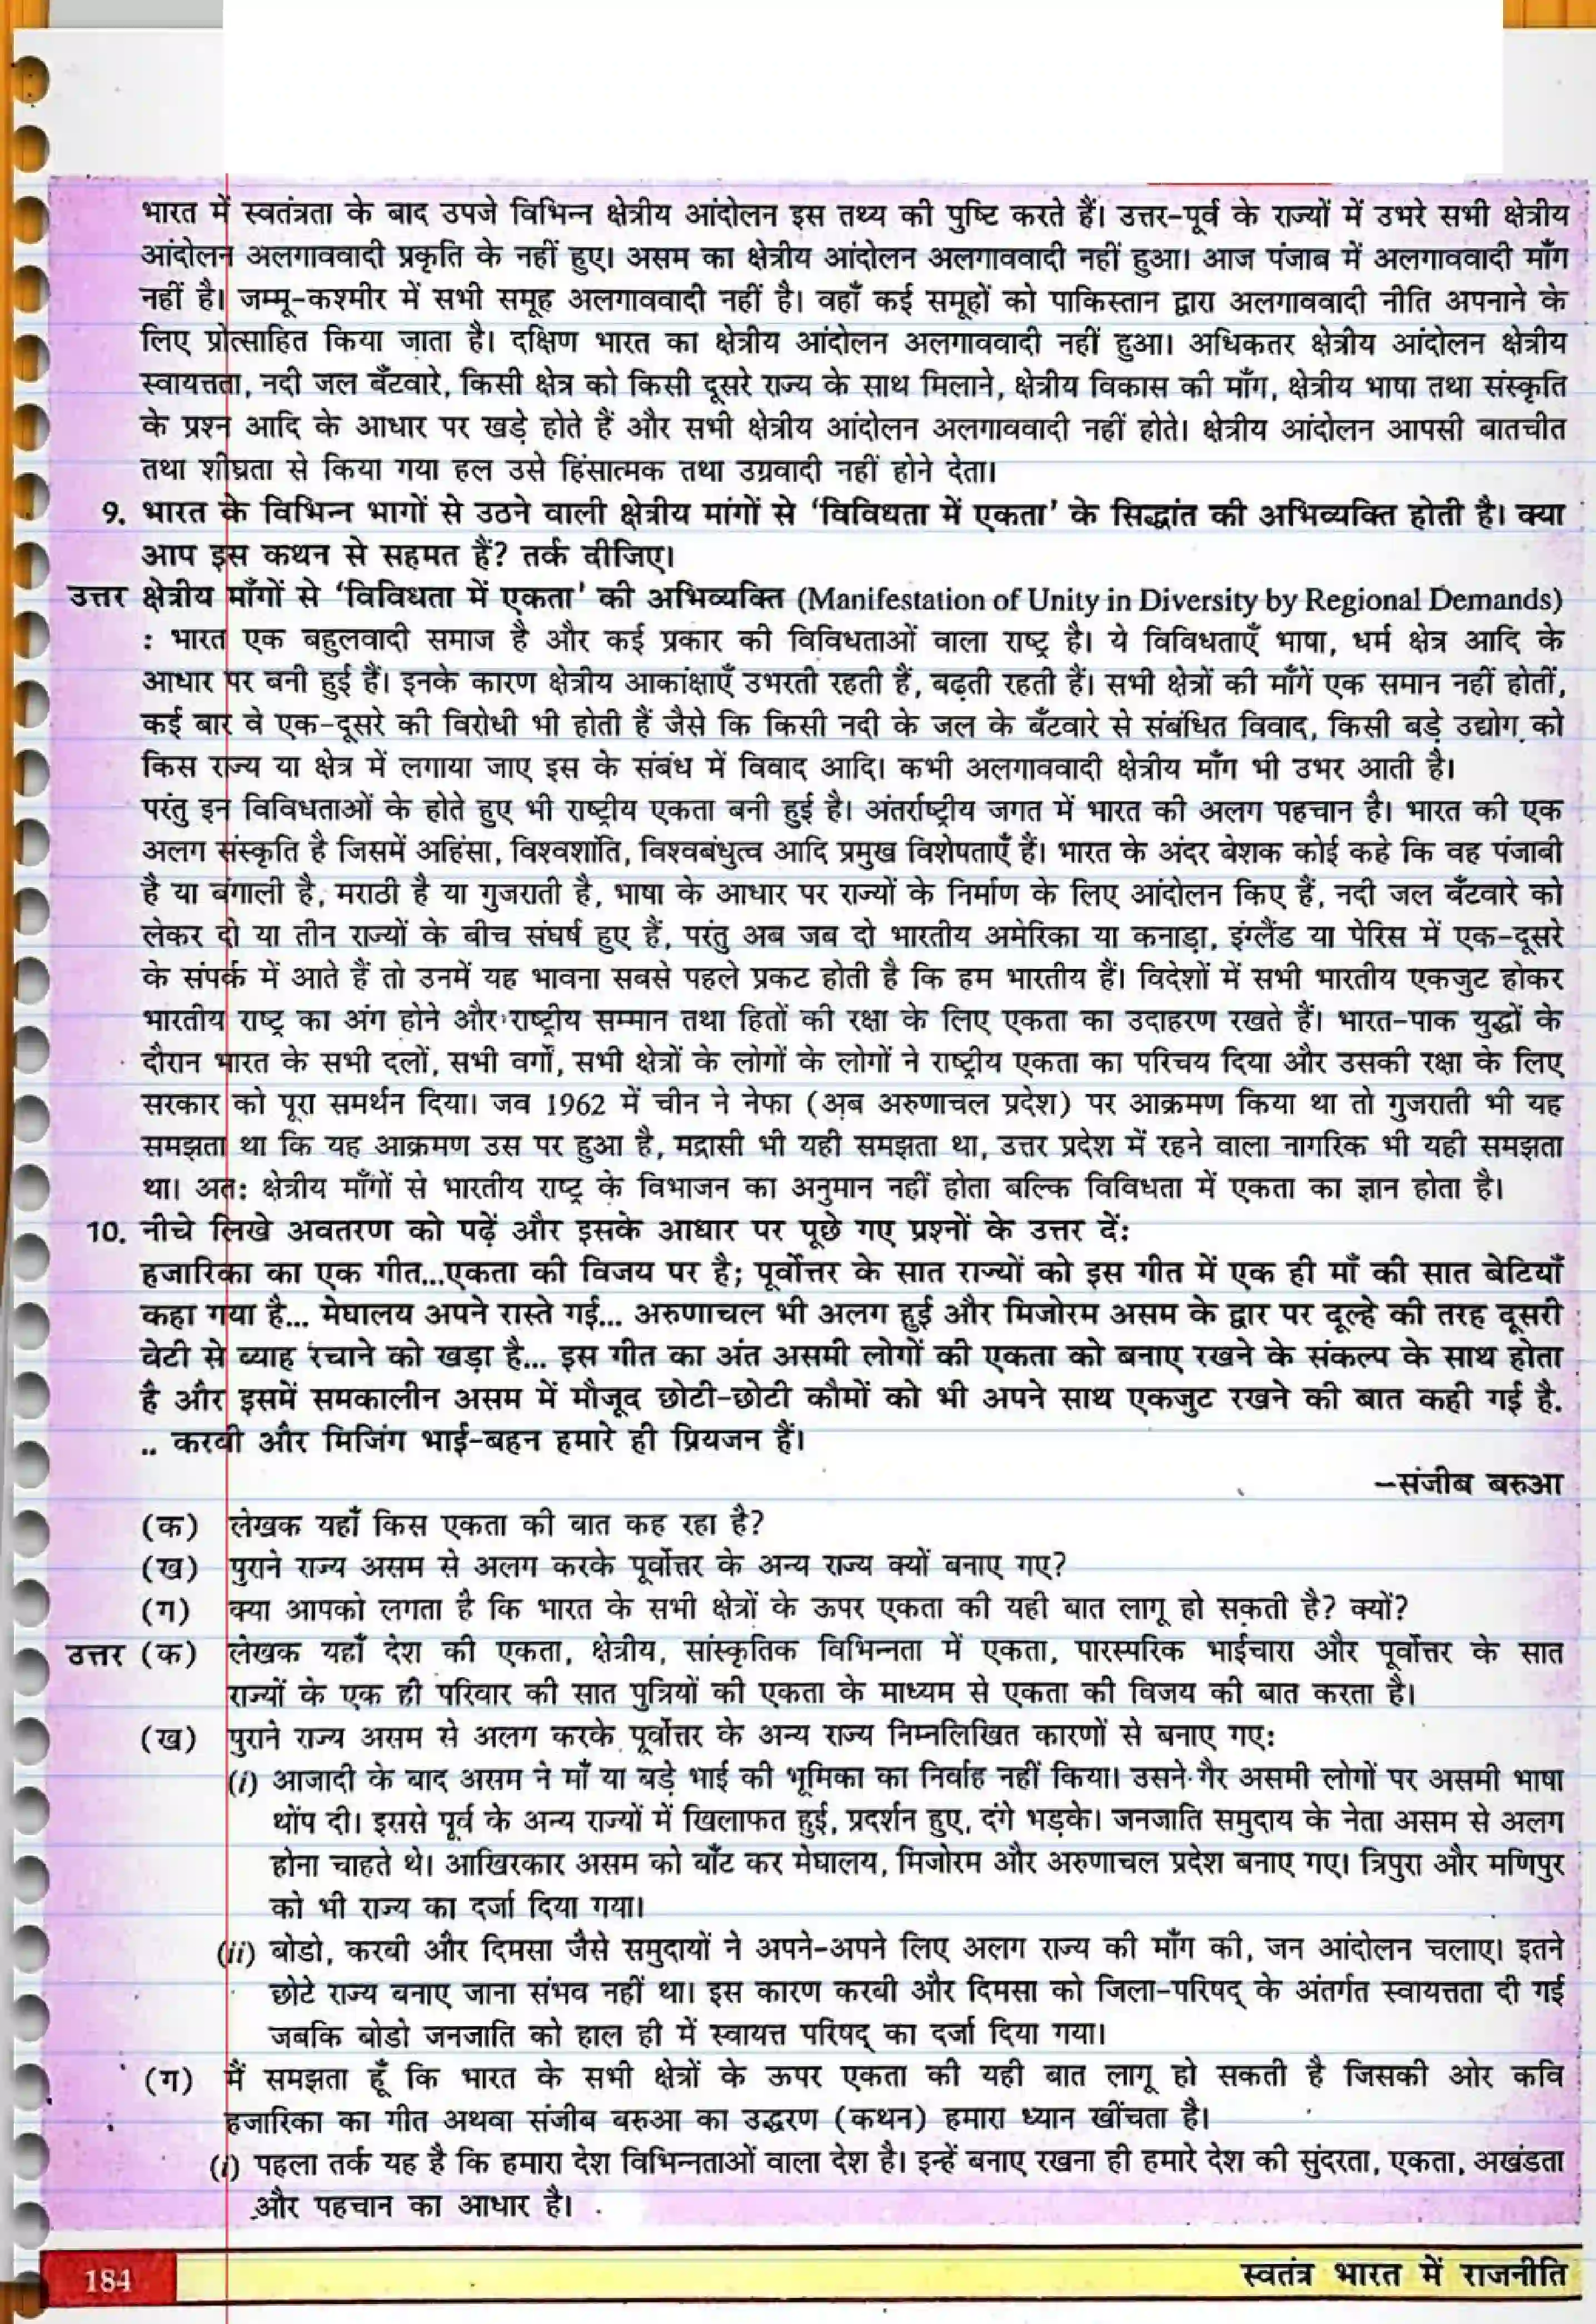 भारत में स्वतंत्रता के बाद उपजे विभिन्न क्षेत्रीय आंदोलन इस तथ्य की पुष्टि करते हैं। उत्तर-पूर्व के राज्यों में उभरे सभी क्षेत्रीय
आंदोलन अलगाववादी प्रकृति के नहीं हुए। असम का क्षेत्रीय आंदोलन अलगाववादी नहीं हुआ। आज पंजाब में अलगाववादी माँग
नहीं है। जम्मू-कश्मीर में सभी समूह अलगाववादी नहीं है। वहाँ कई समूहों को पाकिस्तान द्वारा अलगाववादी नीति अपनाने के
लिए प्रोत्साहित किया जाता है। दक्षिण भारत का क्षेत्रीय आंदोलन अलगाववादी नहीं हुआ। अधिकतर क्षेत्रीय आंदोलन क्षेत्रीय
स्वायत्तता, नदी जल बँटवारे, किसी क्षेत्र को किसी दूसरे राज्य के साथ मिलाने, क्षेत्रीय विकास की माँग, क्षेत्रीय भाषा तथा संस्कृति
के प्रश्न आदि के आधार पर खड़े होते हैं और सभी क्षेत्रीय आंदोलन अलगाववादी नहीं होते। क्षेत्रीय आंदोलन आपसी बातचीत
तथा शीघ्रता से किया गया हल उसे हिंसात्मक तथा उग्रवादी नहीं होने देता।
9. भारत के विभिन्न भागों से उठने वाली क्षेत्रीय मांगों से ‘विविधता में एकता’ के सिद्धांत की अभिव्यक्ति होती है। क्या
आप इस कथन से सहमत हैं? तर्क दीजिए।
उत्तर क्षेत्रीय माँगों से ‘विविधता में एकता’ की अभिव्यक्ति (Manifestation of Unity in Diversity by Regional Demands)
: भारत एक बहुलवादी समाज है और कई प्रकार की विविधताओं वाला राष्ट्र है। ये विविधताएँ भाषा, धर्म क्षेत्र आदि के
आधार पर बनी हुई हैं। इनके कारण क्षेत्रीय आकांक्षाएँ उभरती रहती हैं, बढ़ती रहती हैं। सभी क्षेत्रों की माँगें एक समान नहीं होतीं,
कई बार वे एक-दूसरे की विरोधी भी होती हैं जैसे कि किसी नदी के जल के बँटवारे से संबंधित विवाद, किसी बड़े उद्योग को
किस राज्य या क्षेत्र में लगाया जाए इस के संबंध में विवाद आदि। कभी अलगाववादी क्षेत्रीय माँग भी उभर आती है।
परंतु इन विविधताओं के होते हुए भी राष्ट्रीय एकता बनी हुई है। अंतर्राष्ट्रीय जगत में भारत की अलग पहचान है। भारत की एक
अलग संस्कृति है जिसमें अहिंसा, विश्वशांति, विश्वबंधुत्व आदि प्रमुख विशेषताएँ हैं। भारत के अंदर बेशक कोई कहे कि वह पंजाबी
है या बंगाली है, मराठी है या गुजराती है, भाषा के आधार पर राज्यों के निर्माण के लिए आंदोलन किए हैं, नदी जल बँटवारे को
लेकर दो या तीन राज्यों के बीच संघर्ष हुए हैं, परंतु अब जब दो भारतीय अमेरिका या कनाड़ा, इंग्लैंड या पेरिस में एक-दूसरे
के संपर्क में आते हैं तो उनमें यह भावना सबसे पहले प्रकट होती है कि हम भारतीय हैं। विदेशों में सभी भारतीय एकजुट होकर
भारतीय राष्ट्र का अंग होने और राष्ट्रीय सम्मान तथा हितों की रक्षा के लिए एकता का उदाहरण रखते हैं। भारत-पाक युद्धों के
दौरान भारत के सभी दलों, सभी वर्गों, सभी क्षेत्रों के लोगों के लोगों ने राष्ट्रीय एकता का परिचय दिया और उसकी रक्षा के लिए
सरकार को पूरा समर्थन दिया। जव 1962 में चीन ने नेफा (अब अरुणाचल प्रदेश) पर आक्रमण किया था तो गुजराती भी यह
समझता था कि यह आक्रमण उस पर हुआ है, मद्रासी भी यही समझता था, उत्तर प्रदेश में रहने वाला नागरिक भी यही समझता
था। अत: क्षेत्रीय माँगों से भारतीय राष्ट्र के विभाजन का अनुमान नहीं होता बल्कि विविधता में एकता का ज्ञान होता है।
10. नीचे लिखे अवतरण को पढ़ें और इसके आधार पर पूछे गए प्रश्नों के उत्तर दें:
हजारिका का एक गीत...एकता की विजय पर है; पूर्वोत्तर के सात राज्यों को इस गीत में एक ही माँ की सात बेटियाँ
कहा गया है... मेघालय अपने रास्ते गई... अरुणाचल भी अलग हुई और मिजोरम असम के द्वार पर दूल्हे की तरह दूसरी
बेटी से ब्याह रचाने को खड़ा है... इस गीत का अंत असमी लोगों की एकता को बनाए रखने के संकल्प के साथ होता
है और इसमें समकालीन असम में मौजूद छोटी-छोटी कौमों को भी अपने साथ एकजुट रखने की बात कही गई है.
.. करबी और मिजिंग भाई-बहन हमारे ही प्रियजन हैं।
–संजीब बरुआ
(क) लेखक यहाँ किस एकता की बात कह रहा है?
(ख) पुराने राज्य असम से अलग करके पूर्वोत्तर के अन्य राज्य क्यों बनाए गए?
(ग) क्या आपको लगता है कि भारत के सभी क्षेत्रों के ऊपर एकता की यही बात लागू हो सकती है? क्यों?
उत्तर (क) लेखक यहाँ देश की एकता, क्षेत्रीय, सांस्कृतिक विभिन्नता में एकता, पारस्परिक भाईचारा और पूर्वोत्तर के सात
राज्यों के एक ही परिवार की सात पुत्रियों की एकता के माध्यम से एकता की विजय की बात करता है।
(ख) पुराने राज्य असम से अलग करके पूर्वोत्तर के अन्य राज्य निम्नलिखित कारणों से बनाए गए:
(i) आजादी के बाद असम ने माँ या बड़े भाई की भूमिका का निर्वाह नहीं किया। उसने गैर असमी लोगों पर असमी भाषा
थोंप दी। इससे पूर्व के अन्य राज्यों में खिलाफत हुई, प्रदर्शन हुए, दंगे भड़के। जनजाति समुदाय के नेता असम से अलग
होना चाहते थे। आखिरकार असम को बाँट कर मेघालय, मिजोरम और अरुणाचल प्रदेश बनाए गए। त्रिपुरा और मणिपुर
को भी राज्य का दर्जा दिया गया।
(ii) बोडो, करबी और दिमसा जैसे समुदायों ने अपने-अपने लिए अलग राज्य की माँग की, जन आंदोलन चलाए। इतने
छोटे राज्य बनाए जाना संभव नहीं था। इस कारण करबी और दिमसा को जिला-परिषद् के अंतर्गत स्वायत्तता दी गई
जबकि बोडो जनजाति को हाल ही में स्वायत्त परिषद् का दर्जा दिया गया।
(ग) मैं समझता हूँ कि भारत के सभी क्षेत्रों के ऊपर एकता की यही बात लागू हो सकती है जिसकी ओर कवि
हजारिका का गीत अथवा संजीब बरुआ का उद्धरण (कथन) हमारा ध्यान खींचता है।
(i) पहला तर्क यह है कि हमारा देश विभिन्नताओं वाला देश है। इन्हें बनाए रखना ही हमारे देश की सुंदरता, एकता, अखंडता
और पहचान का आधार है।
184
स्वतंत्र भारत में राजनीति